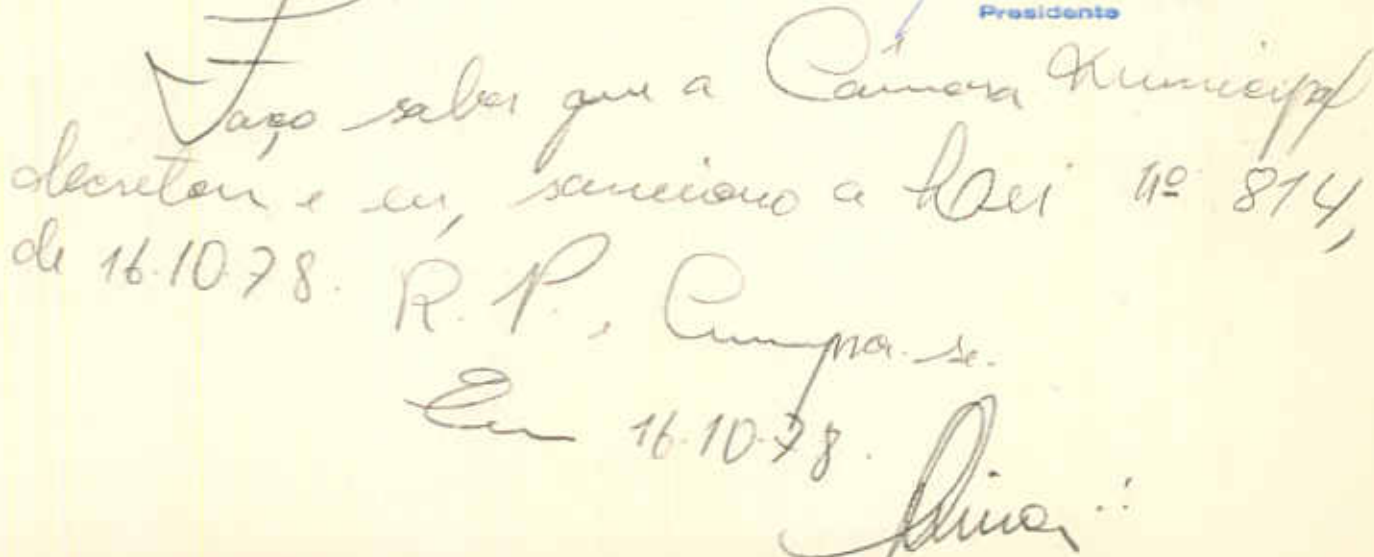 Presidente
Faço saber que a Câmara Municipal
decretou e eu, sanciono a Lei nº 814,
de 16.10.78. R. P., Cumpra-se.
Em 16.10.78.